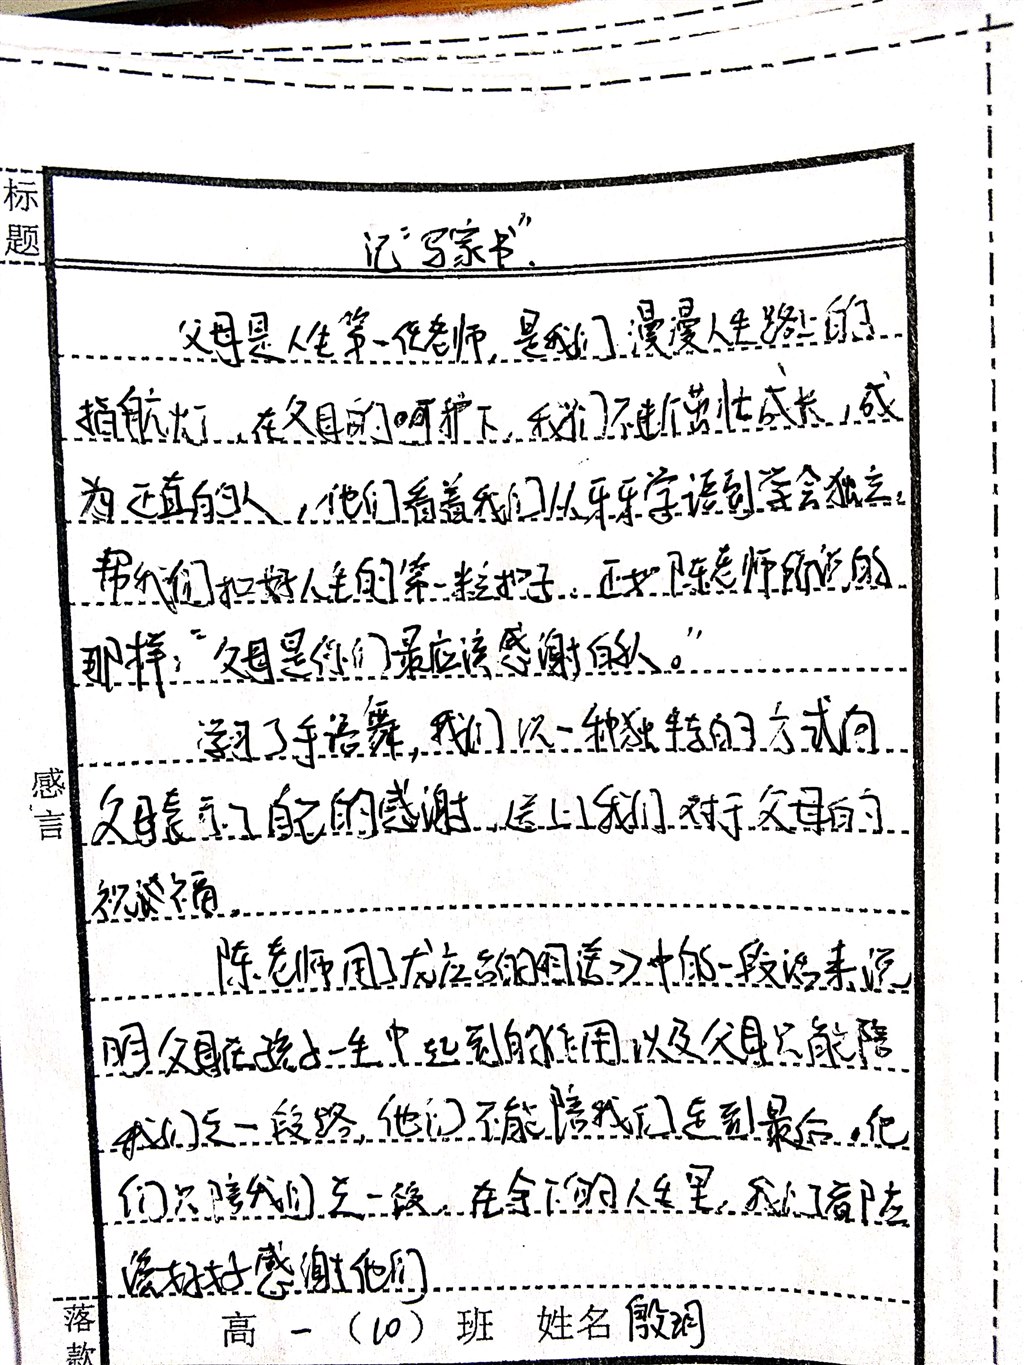 标题
记“写家书”.
父母是人生第一任老师,是我们漫漫人生路上的
指航灯,在父母的呵护下,我们不断茁壮成长,成
为正直的人,他们看着我们从牙牙学语到学会独立,
帮我们扣好人生的第一粒扣子.正如陈老师所说的
那样:“父母是你们最应该感谢的人。”
学习了手语舞,我们以一种独特的方式向
父母表示了自己的感谢,送上我们对于父母的
祝福.
感言
陈老师用了龙应台的目送》中的一段话来说
明父母在孩子一生中起到的作用以及父母只能陪
我们走一段路,他们不能陪我们走到最后.他
们只陪我们走一段.在余下的人生里,我们都应
该好好感谢他们
落款
高一(10)班 姓名殷玥